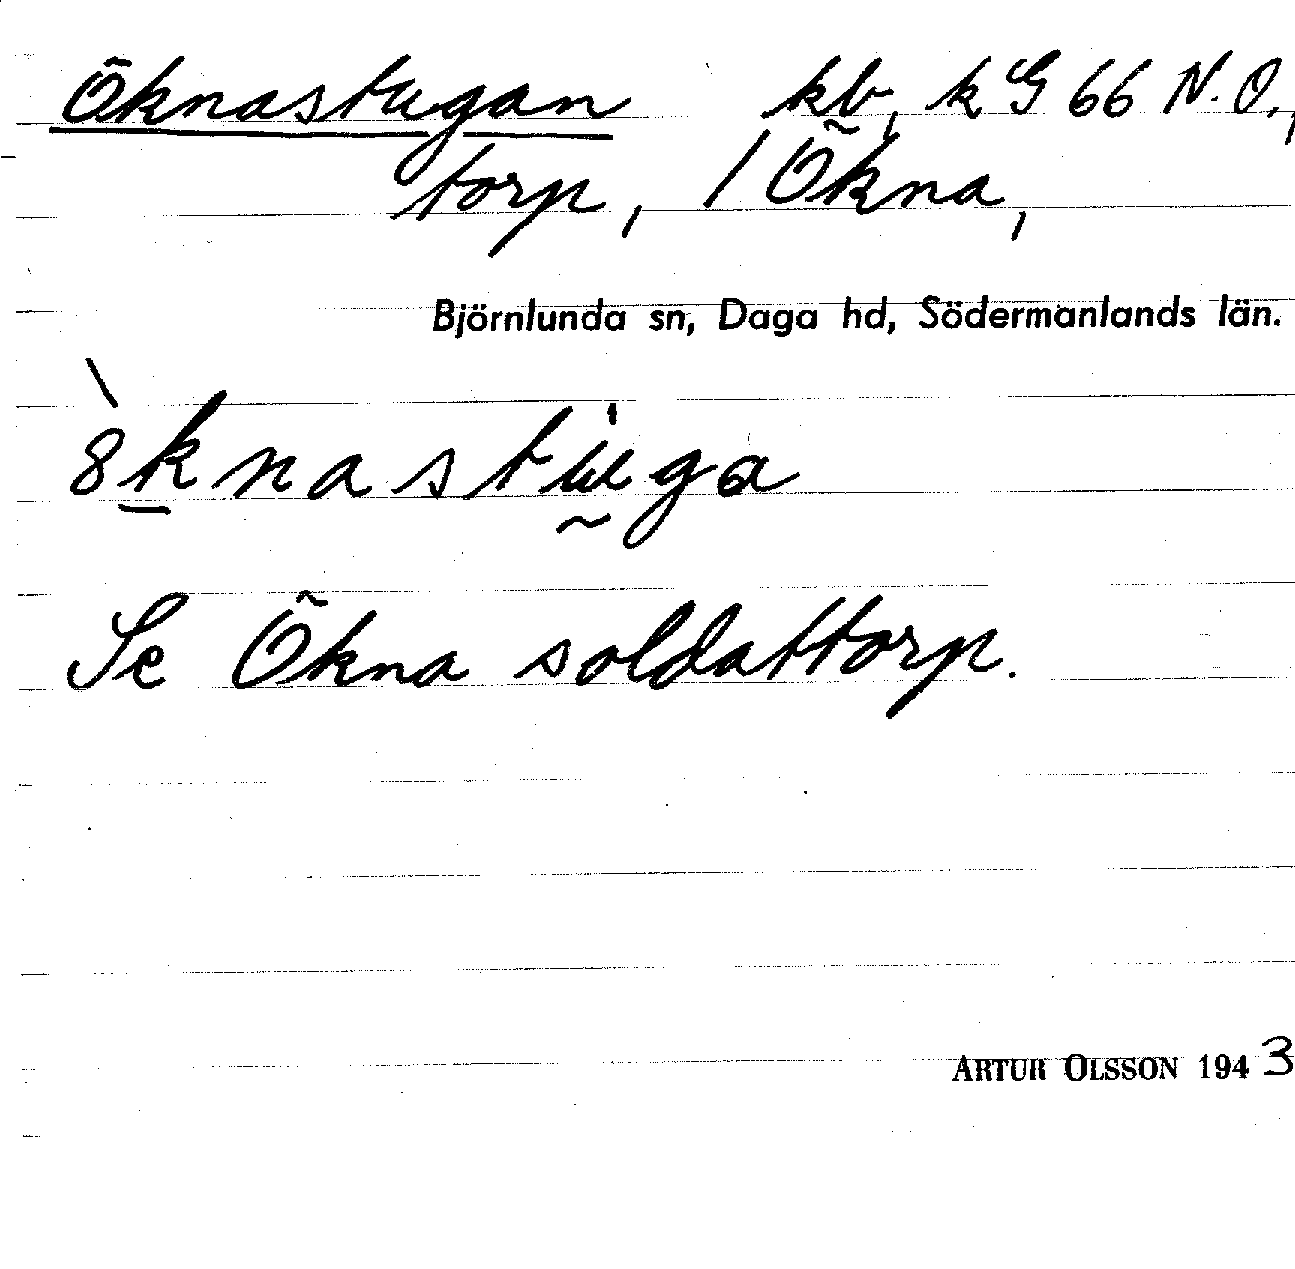 Öknastugan kb, k G 66 N.O.,
torp, / Ökna,
Björnlunda sn, Daga hd, Södermanlands län.
8̀ḵnastṵ̇ga
Se Ökna soldattorp.
ARTUR OLSSON 1943